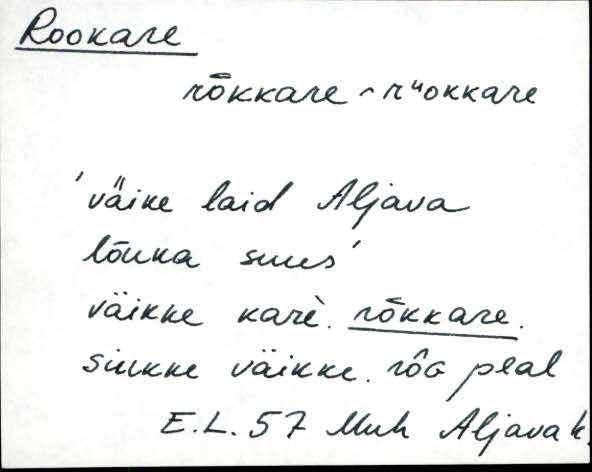 Rookare
rōkkare ~ rᵘokkare
'väike laid Aljava
lõuka suus'
väikke karè. rōkkare.
siukke väikke. rôG peal
E.L. 57 Muh Aljava k.